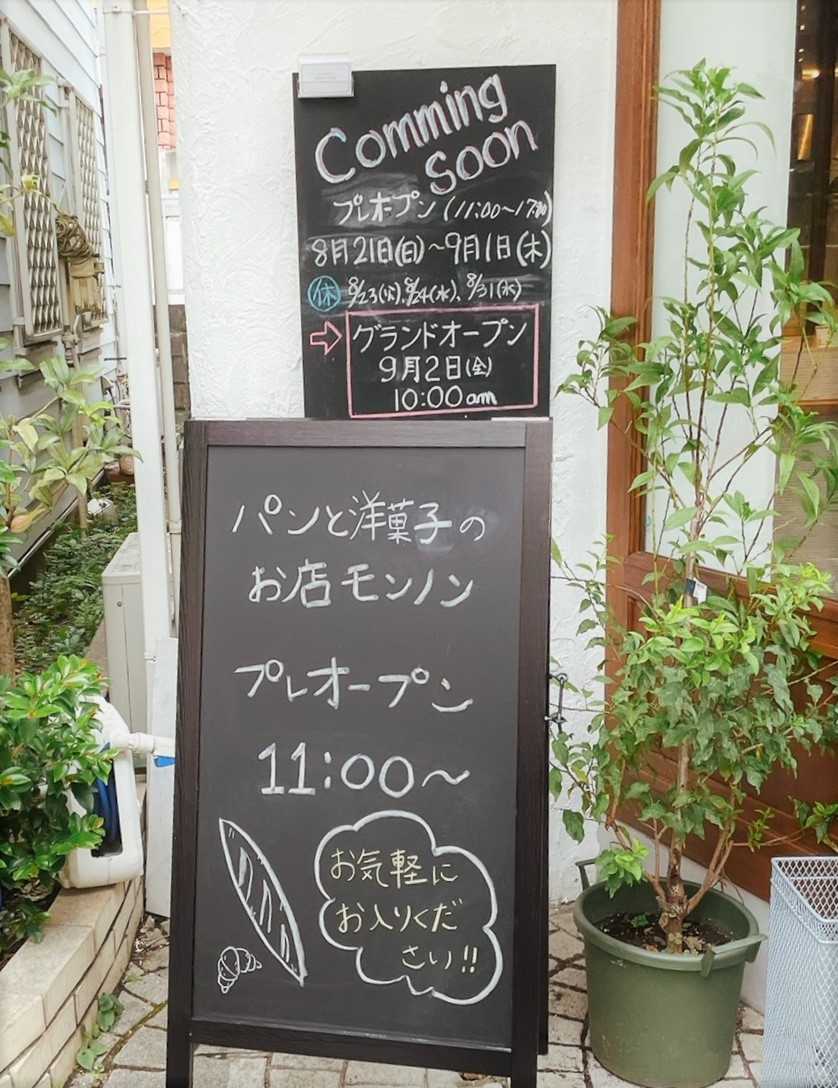 Comming
Soon
プレオープン(11:00~17:00)
8月21日(日)~9月1日(木)
休 8/23(火)、8/24(水)、8/31(水)
グランドオープン
9月2日(金)
10:00am
パンと洋菓子の
お店モンノン
プレオープン
11:00~
お気軽に
お入りくだ
さい!!